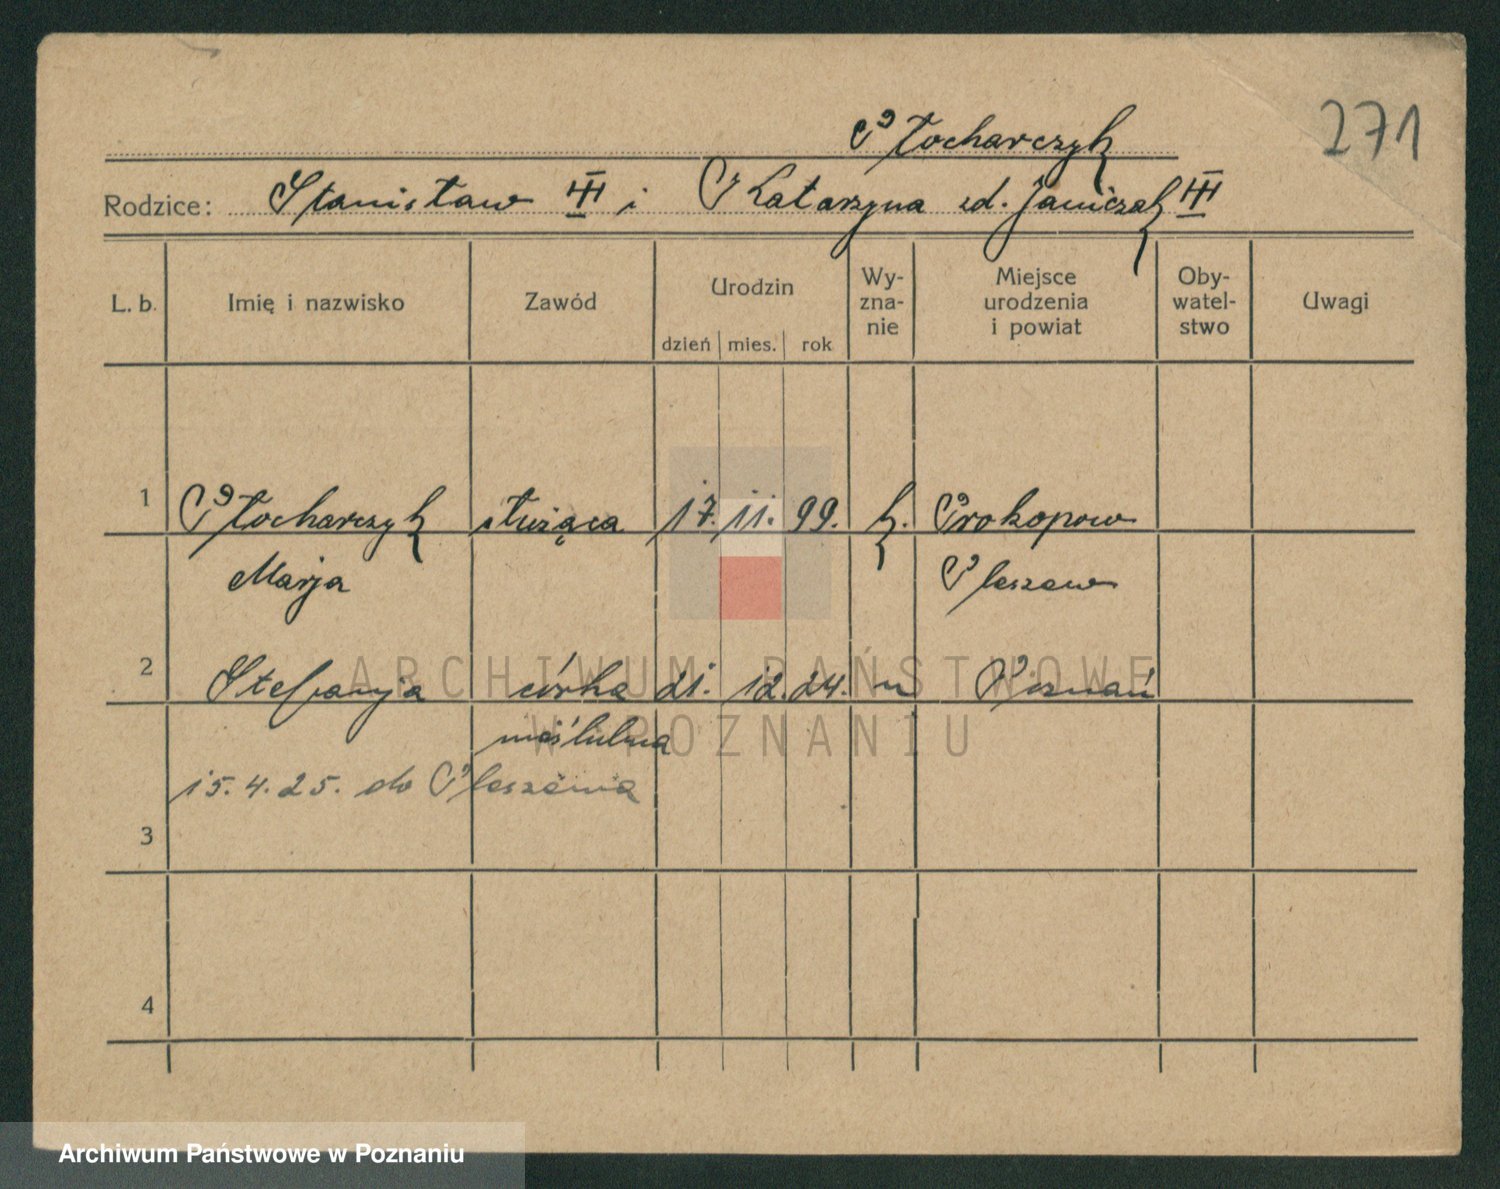 271
Płocharczyk
Rodzice: Stanisław i Katarzyna zd. Janiczak
L. b. Imię i nazwisko Zawód Urodzin dzień mies. rok Wy-zna-nie Miejsce urodzenia i powiat Oby-watel-stwo Uwagi
1 Płocharczyk służąca 17. 11. 99. k. Prokopow
Marja Pleszew
2 Stefanja córka 21. 12. 24. " Poznań
nieślubna
15. 4. 25. do Pleszewa
3
4
ARCHIWUM PAŃSTWOWE
W POZNANIU
Archiwum Państwowe w Poznaniu